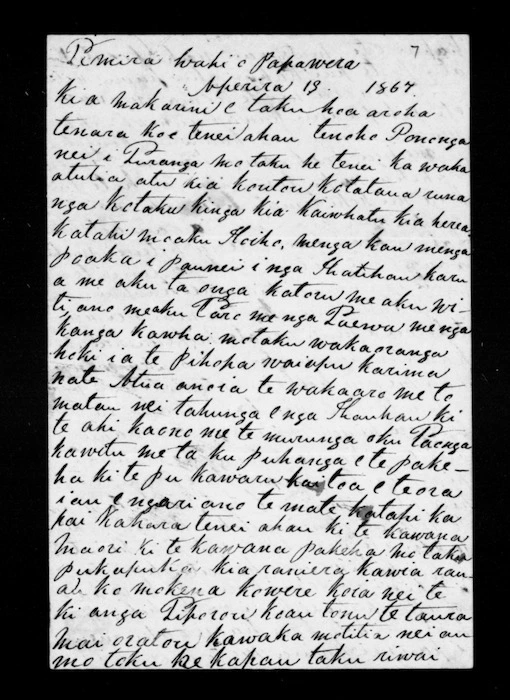 Pimira wahi o Papawera 7
Aperira 13 1867
Kia makarini e taku hoa aroha
tenara koe tenei ahau tenoho Pononga
nei i Turanga mo taku he tenei ka waka
atutia atu kia koutou kotatana runa
nga kotaku kinga kia Kaiwhatu kia herea
katahi moaku Hoiho, menga kau menga
poaka i paunei i nga Ihatihau karu
a me aku ta onga katoru me aku wi-
ti, ano meaku Taro me nga Paewa me nga
kanga kawha. motaku wakaoranga
hoki ia te Pihopa waiapu karima
nate Atua anoia te wakaaro me to
matau nei tahunga e nga Ihauhau ki
te ahi kaono me te murunga oku Taonga
kawitu me ta ku puhanga e te pake-
ha ki te pu kawaru kaitoa e te ora
iau e ngari ano te mate katahi ka
pai kahara tenei ahau ki te kawana
maori ki te kawana pakeha mo taku
pukapuka kia raniera kawia rau
au ko mokena kowere kora nei te
ki anga Piporou koau tonu te taura
mai oratou kawaka motitia nei au
mo toku he kapau taku riwai